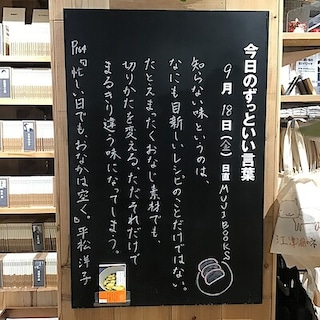 今日のずっといい言葉
9月18日(金) 日直 MUJI BOOKS
知らない味というのは、
なにも目新しいレシピのことだけではない。
たとえまったくおなじ素材でも、
切りかたを変える、ただそれだけで
まるきり違う味になってしまう。
P164『忙しい日でも、おなかは空く。』平松洋子